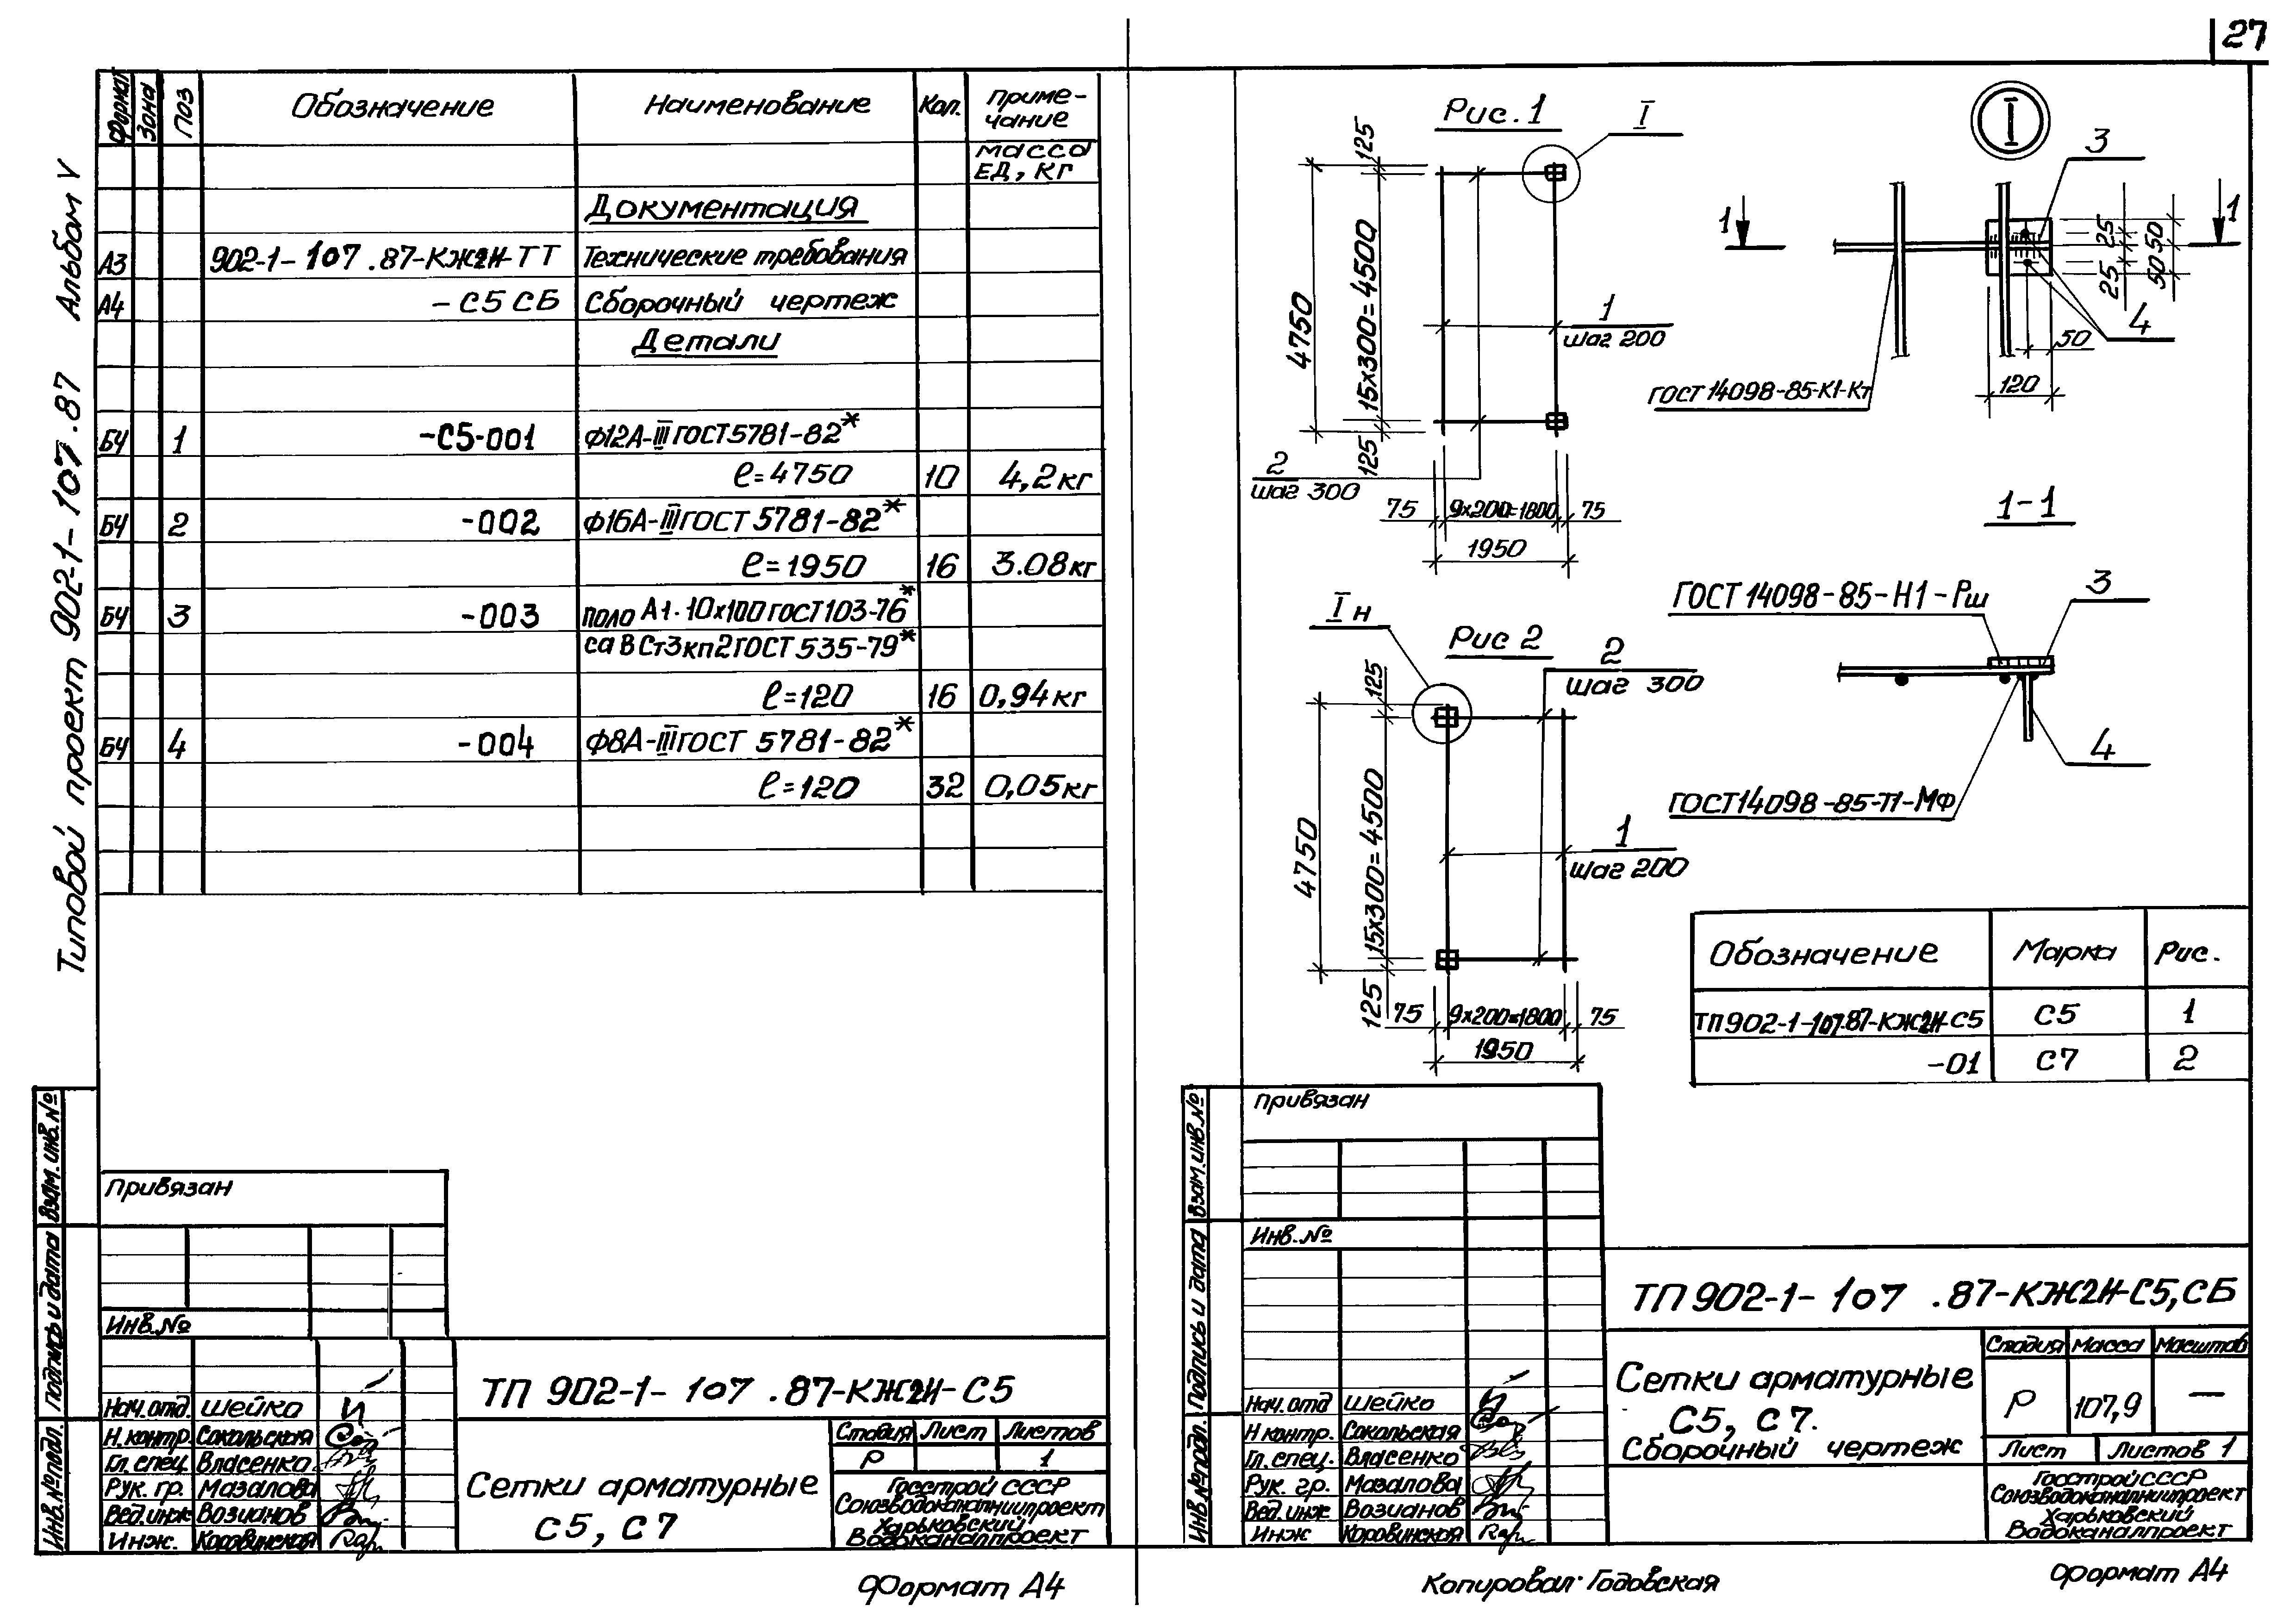 27
Альбом V
Типовой проект 902-1-107.87
Формат Зона Поз Обозначение Наименование Кол. Приме-
чание
масса
ЕД, кг
Документация
А3 902-1-107.87-КЖ2И-ТТ Технические требования
А4 -С5 СБ Сборочный чертеж
Детали
БЧ 1 -С5-001 Ф12А-III ГОСТ 5781-82*
ℓ=4750 10 4,2кг
БЧ 2 -002 Ф16А-III ГОСТ 5781-82*
ℓ=1950 16 3.08кг
БЧ 3 -003 поло А1-10х100 ГОСТ 103-76*
са В Ст3кп2 ГОСТ 535-79*
ℓ=120 16 0,94кг
БЧ 4 -004 Ф8А-III ГОСТ 5781-82*
ℓ=120 32 0,05кг
Взам.инв.№
Подпись и дата
Инв.№подл.
Привязан
Инв.№
Нач.отд. Шейко
Н.контр. Сокольская
Гл.спец. Власенко
Рук. гр. Мазалова
Вед.инж Возианов
Инж. Коровинская
ТП 902-1-107.87-КЖ2И-С5
Сетки арматурные
С5, С7
Стадия Лист Листов
Р 1
Госстрой СССР
Союзводоканалниипроект
Харьковский
Водоканалпроект
Формат А4
Рис. 1
I
125
15х300=4500
4750
125
1
шаг 200
2
шаг 300
75 9х200=1800 75
1950
I
3
1 1
25 50
25 50
4
50
120
ГОСТ 14098-85-К1-Кт
1-1
ГОСТ 14098-85-Н1-Рш
3
4
ГОСТ 14098-85-Т1-МФ
Iн
Рис 2
2
шаг 300
125
15х300=4500
4750
125
1
шаг 200
75 9х200=1800 75
1950
Обозначение Марка Рис.
ТП902-1-107.87-КЖ2И-С5 С5 1
-01 С7 2
Взам.инв.№
Подпись и дата
Инв.№подл.
Привязан
Инв.№
Нач.отд Шейко
Н контр. Сокольская
Гл.спец. Власенко
Рук. гр. Мазалова
Вед.инж Возианов
Инж Коровинская
ТП 902-1-107.87-КЖ2И-С5,СБ
Сетки арматурные
С5, С7.
Сборочный чертеж
Стадия Масса Масштаб
Р 107,9 —
Лист Листов 1
Госстрой СССР
Союзводоканалниипроект
Харьковский
Водоканалпроект
Копировал: Годовская
Формат А4